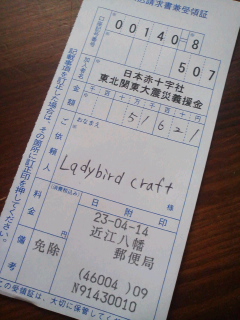 請求書兼受領証
口座記番号
00140-8
507
加入者名
日本赤十字社
東北関東大震災義援金
金額
千 百 十 万 千 百 十 円
51621
ご依頼人
おなまえ
Ladybird craft
様
料金
(消費税込み)
免除
日附印
23-04-14
近江八幡
郵便局
(46004)09
N91430010
備考
記載事項を訂正した場合は、その箇所に訂正印を押してください。
この受領証は、大切に保管して